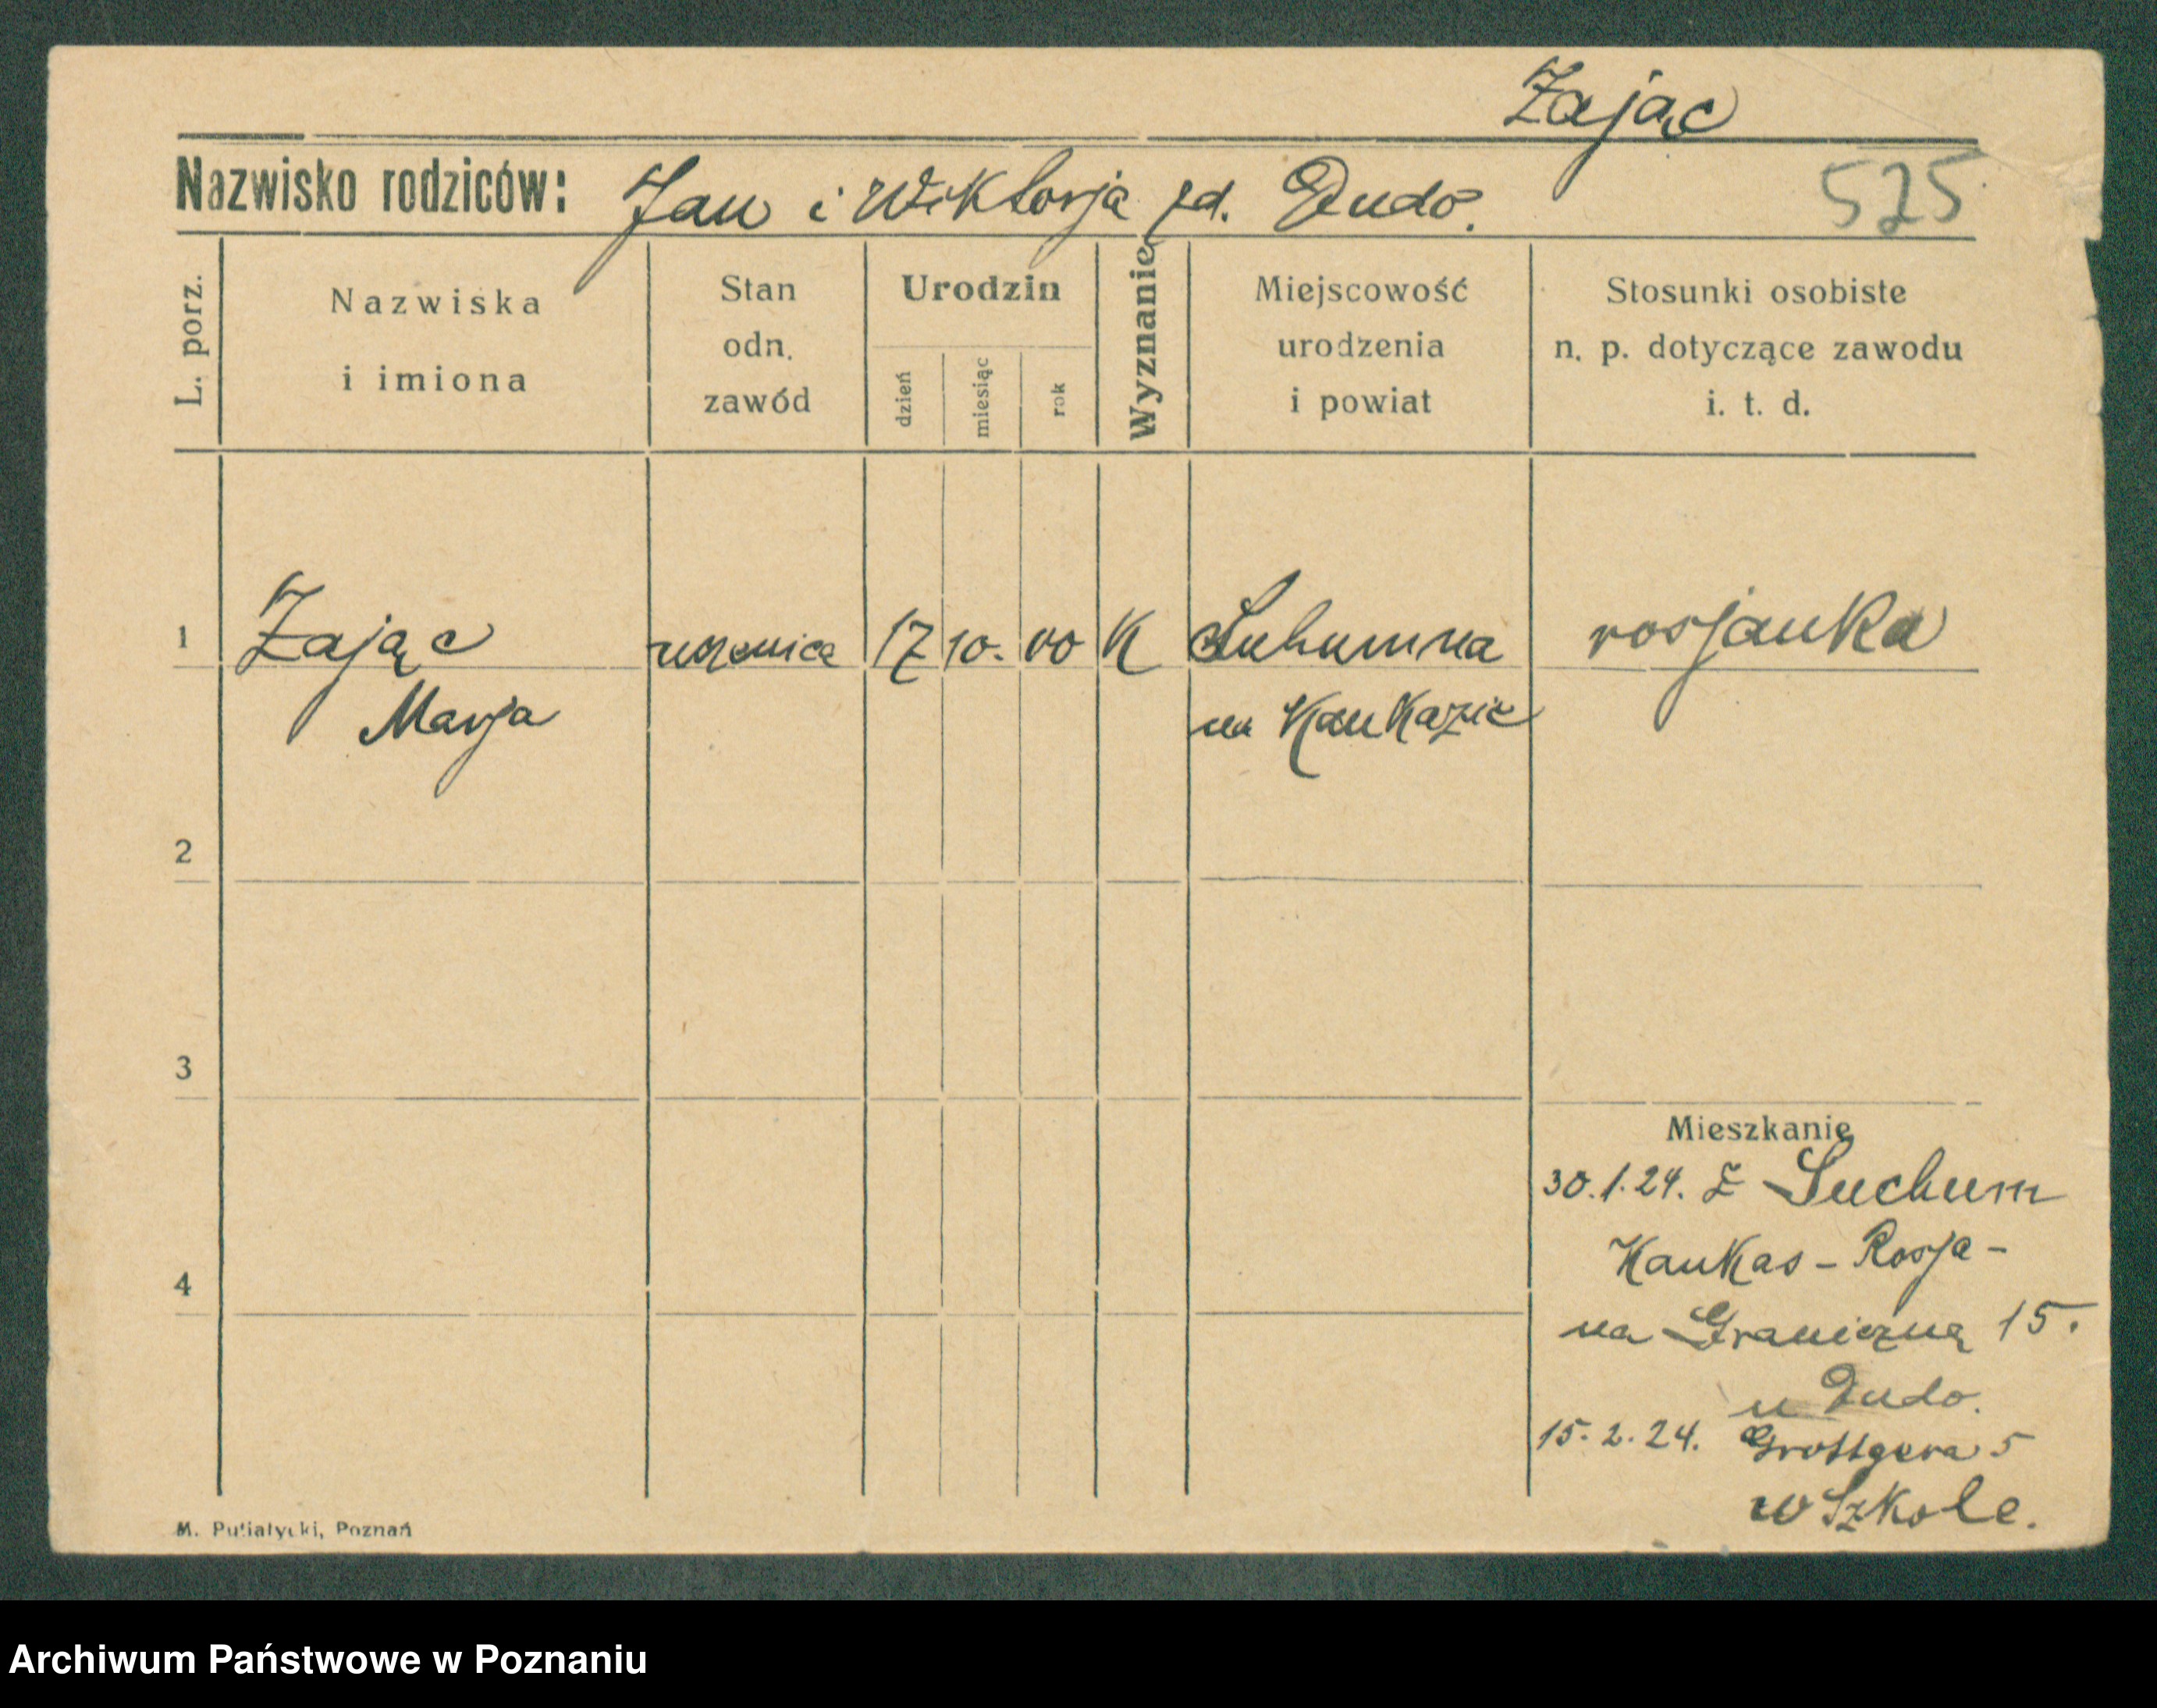 Zając
Nazwisko rodziców: Jan i Wiktorja zd. Dudo.
525
L. porz.
Nazwiska
i imiona
Stan
odn.
zawód
Urodzin
dzień
miesiąc
rok
Wyznanie
Miejscowość
urodzenia
i powiat
Stosunki osobiste
n. p. dotyczące zawodu
i. t. d.
1 Zając uczenica 17 10. 00 K Suhumna rosjanka
Marja na Kaukazie
2
3
Mieszkanie
30.1.24. Z Suchum
Kaukas - Rosja -
4
na Graniczną 15.
u Dudo.
15.2.24. Grottgera 5
w Szkole.
M. Putiatycki, Poznań
Archiwum Państwowe w Poznaniu